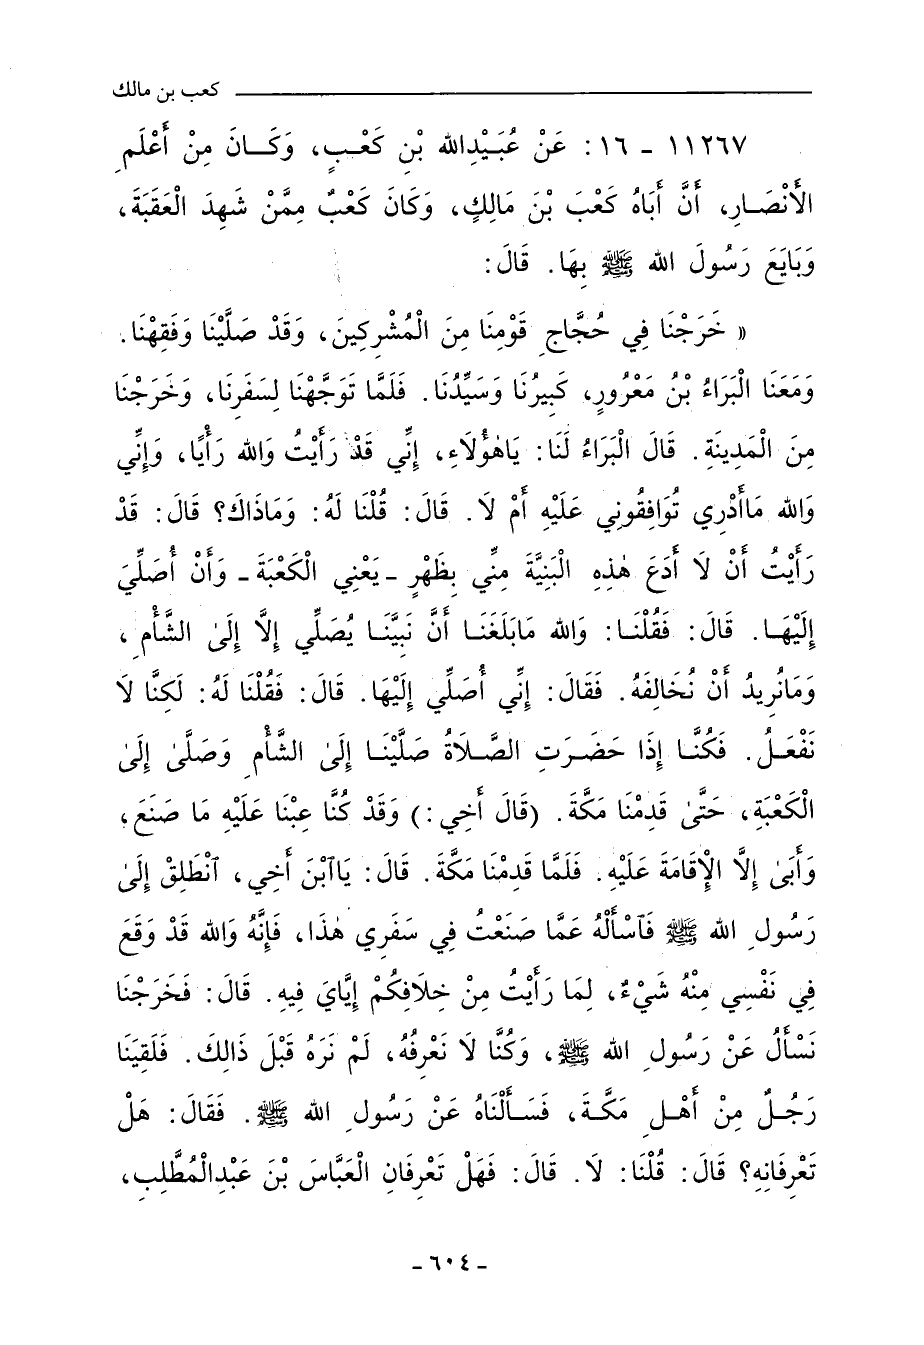 كعب بن مالك
١١٢٦٧ - ١٦ : عَنْ عُبَيْدِالله بْنِ كَعْبٍ، وَكَانَ مِنْ أَعْلَمِ
الأَنْصَارِ، أَنَّ أَبَاهُ كَعْبَ بْنَ مَالِكٍ، وَكَانَ كَعْبٌ مِمَّنْ شَهِدَ الْعَقَبَةَ،
وَبَايَعَ رَسُولَ الله ﷺ بِهَا. قَالَ:
« خَرَجْنَا فِي حُجَّاجِ قَوْمِنَا مِنَ الْمُشْرِكِينَ، وَقَدْ صَلَّيْنَا وَفَقِهْنَا.
وَمَعَنَا الْبَرَاءُ بْنُ مَعْرُورٍ، كَبِيرُنَا وَسَيِّدُنَا. فَلَمَّا تَوَجَّهْنَا لِسَفَرِنَا، وَخَرَجْنَا
مِنَ الْمَدِينَةِ. قَالَ الْبَرَاءُ لَنَا: يَاهٰؤُلَاءِ، إِنِّي قَدْ رَأَيْتُ وَالله رَأْيًا، وَإِنِّي
وَالله مَاأَدْرِي تُوَافِقُونِي عَلَيْهِ أَمْ لَا. قَالَ: قُلْنَا لَهُ: وَمَاذَاكَ؟ قَالَ: قَدْ
رَأَيْتُ أَنْ لَا أَدَعَ هٰذِهِ الْبَنِيَّةَ مِنِّي بِظَهْرٍ - يَعْنِي الْكَعْبَةَ - وَأَنْ أُصَلِّيَ
إِلَيْهَا. قَالَ: فَقُلْنَا: وَالله مَابَلَغَنَا أَنَّ نَبِيَّنَا يُصَلِّي إِلَّا إِلَىٰ الشَّأْمِ،
وَمَانُرِيدُ أَنْ نُخَالِفَهُ. فَقَالَ: إِنِّي أُصَلِّي إِلَيْهَا. قَالَ: فَقُلْنَا لَهُ: لَكِنَّا لَا
نَفْعَلُ. فَكُنَّا إِذَا حَضَرَتِ الصَّلَاةُ صَلَّيْنَا إِلَىٰ الشَّأْمِ وَصَلَّىٰ إِلَىٰ
الْكَعْبَةِ، حَتَّىٰ قَدِمْنَا مَكَّةَ. (قَالَ أَخِي:) وَقَدْ كُنَّا عِبْنَا عَلَيْهِ مَا صَنَعَ،
وَأَبَىٰ إِلَّا الْإِقَامَةَ عَلَيْهِ. فَلَمَّا قَدِمْنَا مَكَّةَ. قَالَ: يَاٱبْنَ أَخِي، ٱنْطَلِقْ إِلَىٰ
رَسُولِ الله ﷺ فَٱسْأَلْهُ عَمَّا صَنَعْتُ فِي سَفَرِي هٰذَا، فَإِنَّهُ وَالله قَدْ وَقَعَ
فِي نَفْسِي مِنْهُ شَيْءٌ، لِمَا رَأَيْتُ مِنْ خِلَافِكُمْ إِيَّايَ فِيهِ. قَالَ: فَخَرَجْنَا
نَسْأَلُ عَنْ رَسُولِ الله ﷺ، وَكُنَّا لَا نَعْرِفُهُ، لَمْ نَرَهُ قَبْلَ ذَالِكَ. فَلَقِيَنَا
رَجُلٌ مِنْ أَهْلِ مَكَّةَ، فَسَأَلْنَاهُ عَنْ رَسُولِ الله ﷺ. فَقَالَ: هَلْ
تَعْرِفَانِهِ؟ قَالَ: قُلْنَا: لَا. قَالَ: فَهَلْ تَعْرِفَانِ الْعَبَّاسَ بْنَ عَبْدِالْمُطَّلِبِ،
- ٦٠٤ -